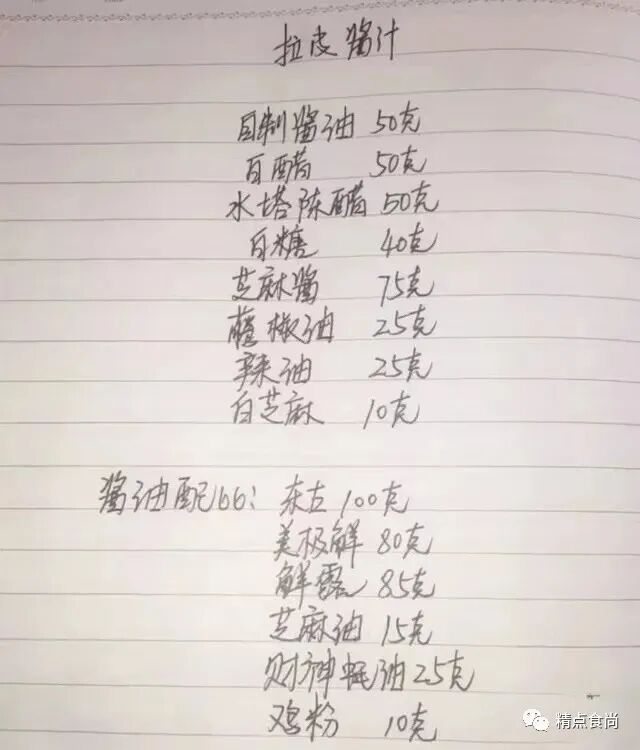 拉皮酱汁
自制酱油 50克
白醋 50克
水塔陈醋 50克
白糖 40克
芝麻酱 75克
藤椒油 25克
辣油 25克
白芝麻 10克
酱油配比: 东古 100克
美极鲜 80克
鲜露 85克
芝麻油 15克
财神蚝油 25克
鸡粉 10克
精点食尚